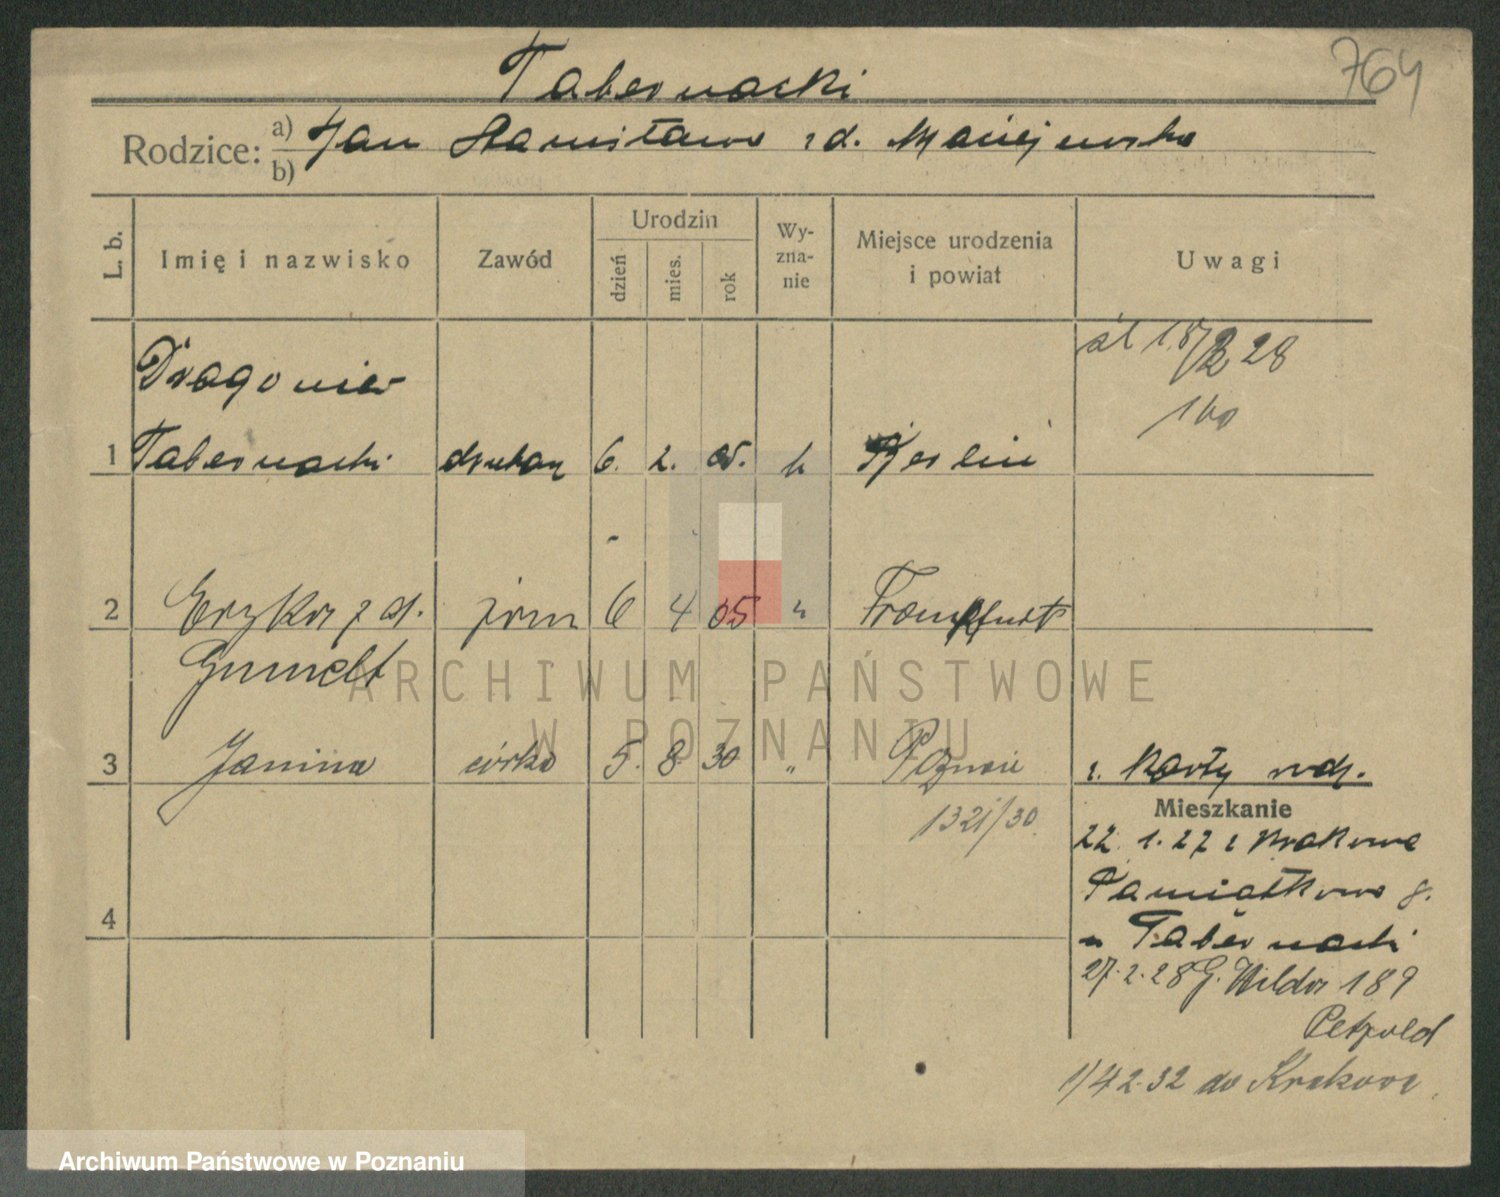 Tabernacki
764
Rodzice: a) Jan Stanisława z d. Maciejewska
b)
L. b.
Imię i nazwisko
Zawód
Urodzin
dzień
mies.
rok
Wy-
zna-
nie
Miejsce urodzenia
i powiat
Uwagi
śl 18/2 28
Dragomir
1 Tabernacki drukarz 6. 2. 05. k Berlin
2 Eryka z d. żona 6 4 05 " Frankfurt
Grunelt
3 Janina córka 5. 8. 30 " Poznań z. karty rodz.
1321/30
Mieszkanie
22. 1. 27 z Krakowa
Pamiątkowa 8.
u Tabernacki
27. 2. 28 G. Wilda 189
Petzold
4
1/4 2.32 do Krakowa.
ARCHIWUM PAŃSTWOWE
W POZNANIU
Archiwum Państwowe w Poznaniu